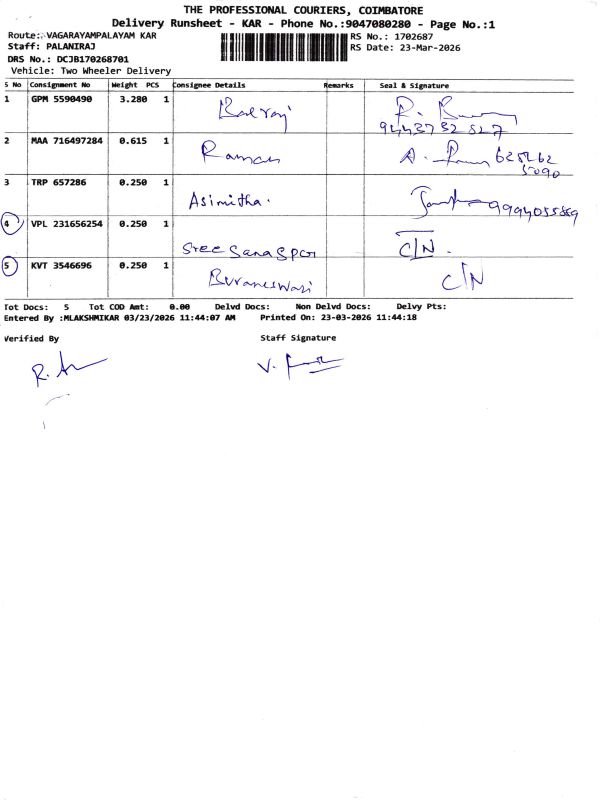 THE PROFESSIONAL COURIERS, COIMBATORE
Delivery Runsheet - KAR - Phone No.:9047080280 - Page No.:1
Route: VAGARAYAMPALAYAM KAR
RS No.: 1702687
Staff: PALANIRAJ
RS Date: 23-Mar-2026
DRS No.: DCJB170268701
Vehicle: Two Wheeler Delivery
S No Consignment No Weight PCS Consignee Details Remarks Seal & Signature
1 GPM 5590490 3.280 1
2 MAA 716497284 0.615 1 Raman
3 TRP 657286 0.250 1 Asimitha.
4 VPL 231656254 0.250 1 C/N.
5 KVT 3546696 0.250 1 C/N
Tot Docs: 5 Tot COD Amt: 0.00 Delvd Docs: Non Delvd Docs: Delvy Pts:
Entered By :MLAKSHMIKAR 03/23/2026 11:44:07 AM Printed On: 23-03-2026 11:44:18
Verified By Staff Signature